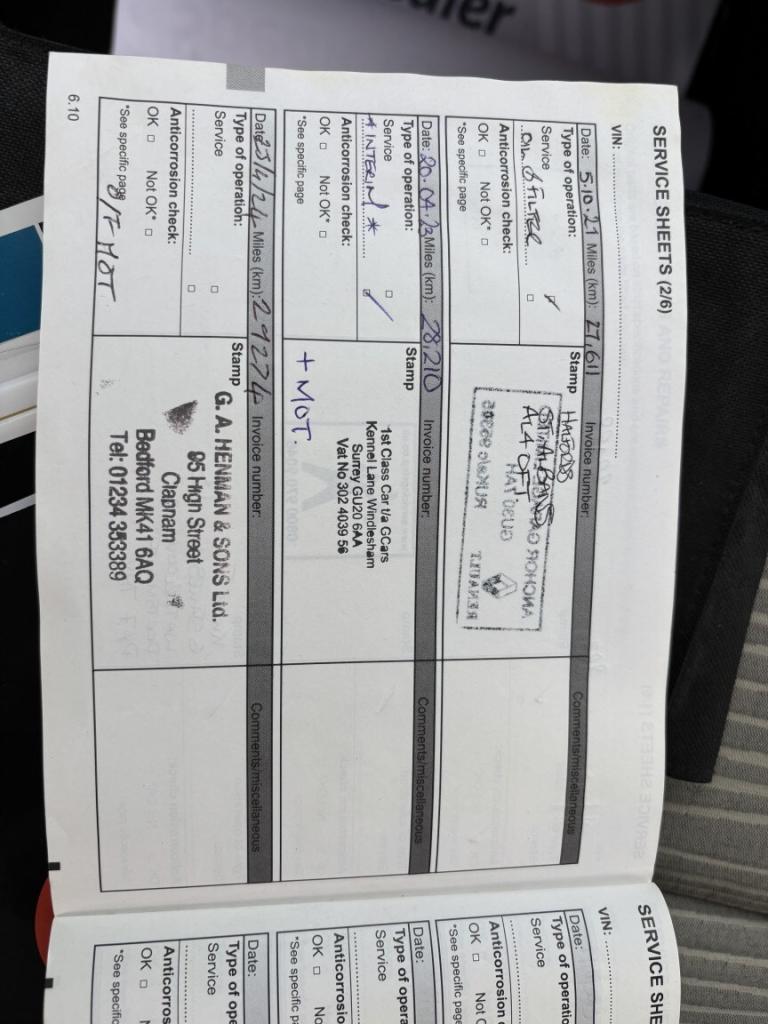 SERVICE SHEETS (2/6)
VIN:
Date: 5.10.21 Miles (km): 27,611 Invoice number: Comments/miscellaneous
Type of operation: Stamp
Service
OIL & FILTER
Anticorrosion check:
OK □ Not OK* □
*See specific page
HALFORDS
AL4
RENAULT
Date: 20.04.23 Miles (km): 28,210 Invoice number: Comments/miscellaneous
Type of operation: Stamp
Service □
* INTERIM *
Anticorrosion check:
OK □ Not OK* □
*See specific page
1st Class Car t/a GCars
Kennel Lane Windlesham
Surrey GU20 6AA
Vat No 302 4039 56
+ MOT.
Date: 25/4/24 Miles (km): 29274 Invoice number: Comments/miscellaneous
Type of operation: Stamp
Service □
□
Anticorrosion check:
OK □ Not OK* □
*See specific page
O/F MOT
G. A. HENMAN & SONS Ltd.
95 High Street
Clapham
Bedford MK41 6AQ
Tel: 01234 353389
6.10
SERVICE SHE
VIN:
Date:
Type of operatio
Service
Anticorrosion
OK □ Not O
*See specific page
Date:
Type of opera
Service
Anticorrosio
OK □ No
*See specific pa
Date:
Type of ope
Service
Anticorros
OK □
*See specific